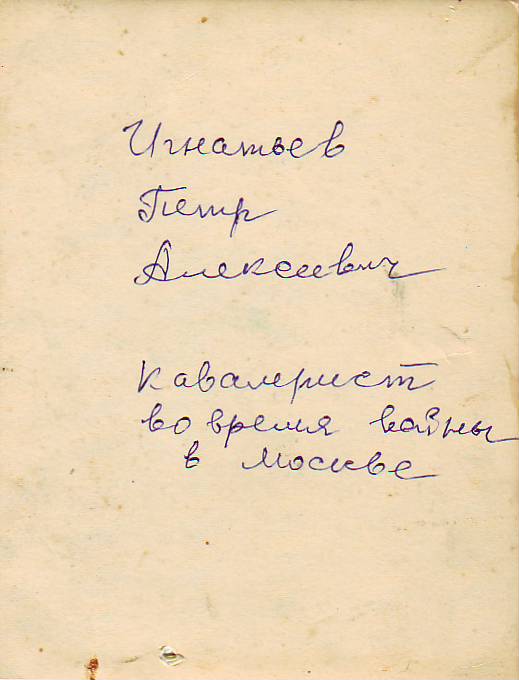 Игнатьев
Петр
Алексеевич
кавалерист
во время войны
в Москве